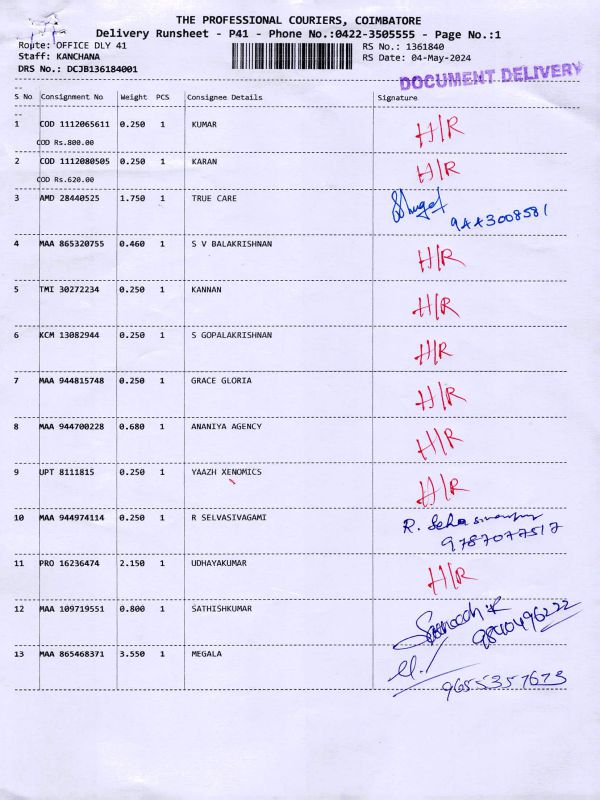 THE PROFESSIONAL COURIERS, COIMBATORE
Delivery Runsheet - P41 - Phone No.:0422-3505555 - Page No.:1
Route: OFFICE DLY 41 RS No.: 1361840
Staff: KANCHANA RS Date: 04-May-2024
DRS No.: DCJB136184001
DOCUMENT DELIVERY
S No Consignment No Weight PCS Consignee Details Signature
1 COD 1112065611 0.250 1 KUMAR H/R
COD Rs.800.00
2 COD 1112080505 0.250 1 KARAN H/R
COD Rs.620.00
3 AMD 28440525 1.750 1 TRUE CARE
4 MAA 865320755 0.460 1 S V BALAKRISHNAN H/R
5 TMI 30272234 0.250 1 KANNAN H/R
6 KCM 13082944 0.250 1 S GOPALAKRISHNAN H/R
7 MAA 944815748 0.250 1 GRACE GLORIA H/R
8 MAA 944700228 0.680 1 ANANIYA AGENCY H/R
9 UPT 8111815 0.250 1 YAAZH XENOMICS H/R
10 MAA 944974114 0.250 1 R SELVASIVAGAMI R.
9787077517
11 PRO 16236474 2.150 1 UDHAYAKUMAR H/R
12 MAA 109719551 0.800 1 SATHISHKUMAR
9840496222
13 MAA 865468371 3.550 1 MEGALA
9655357673